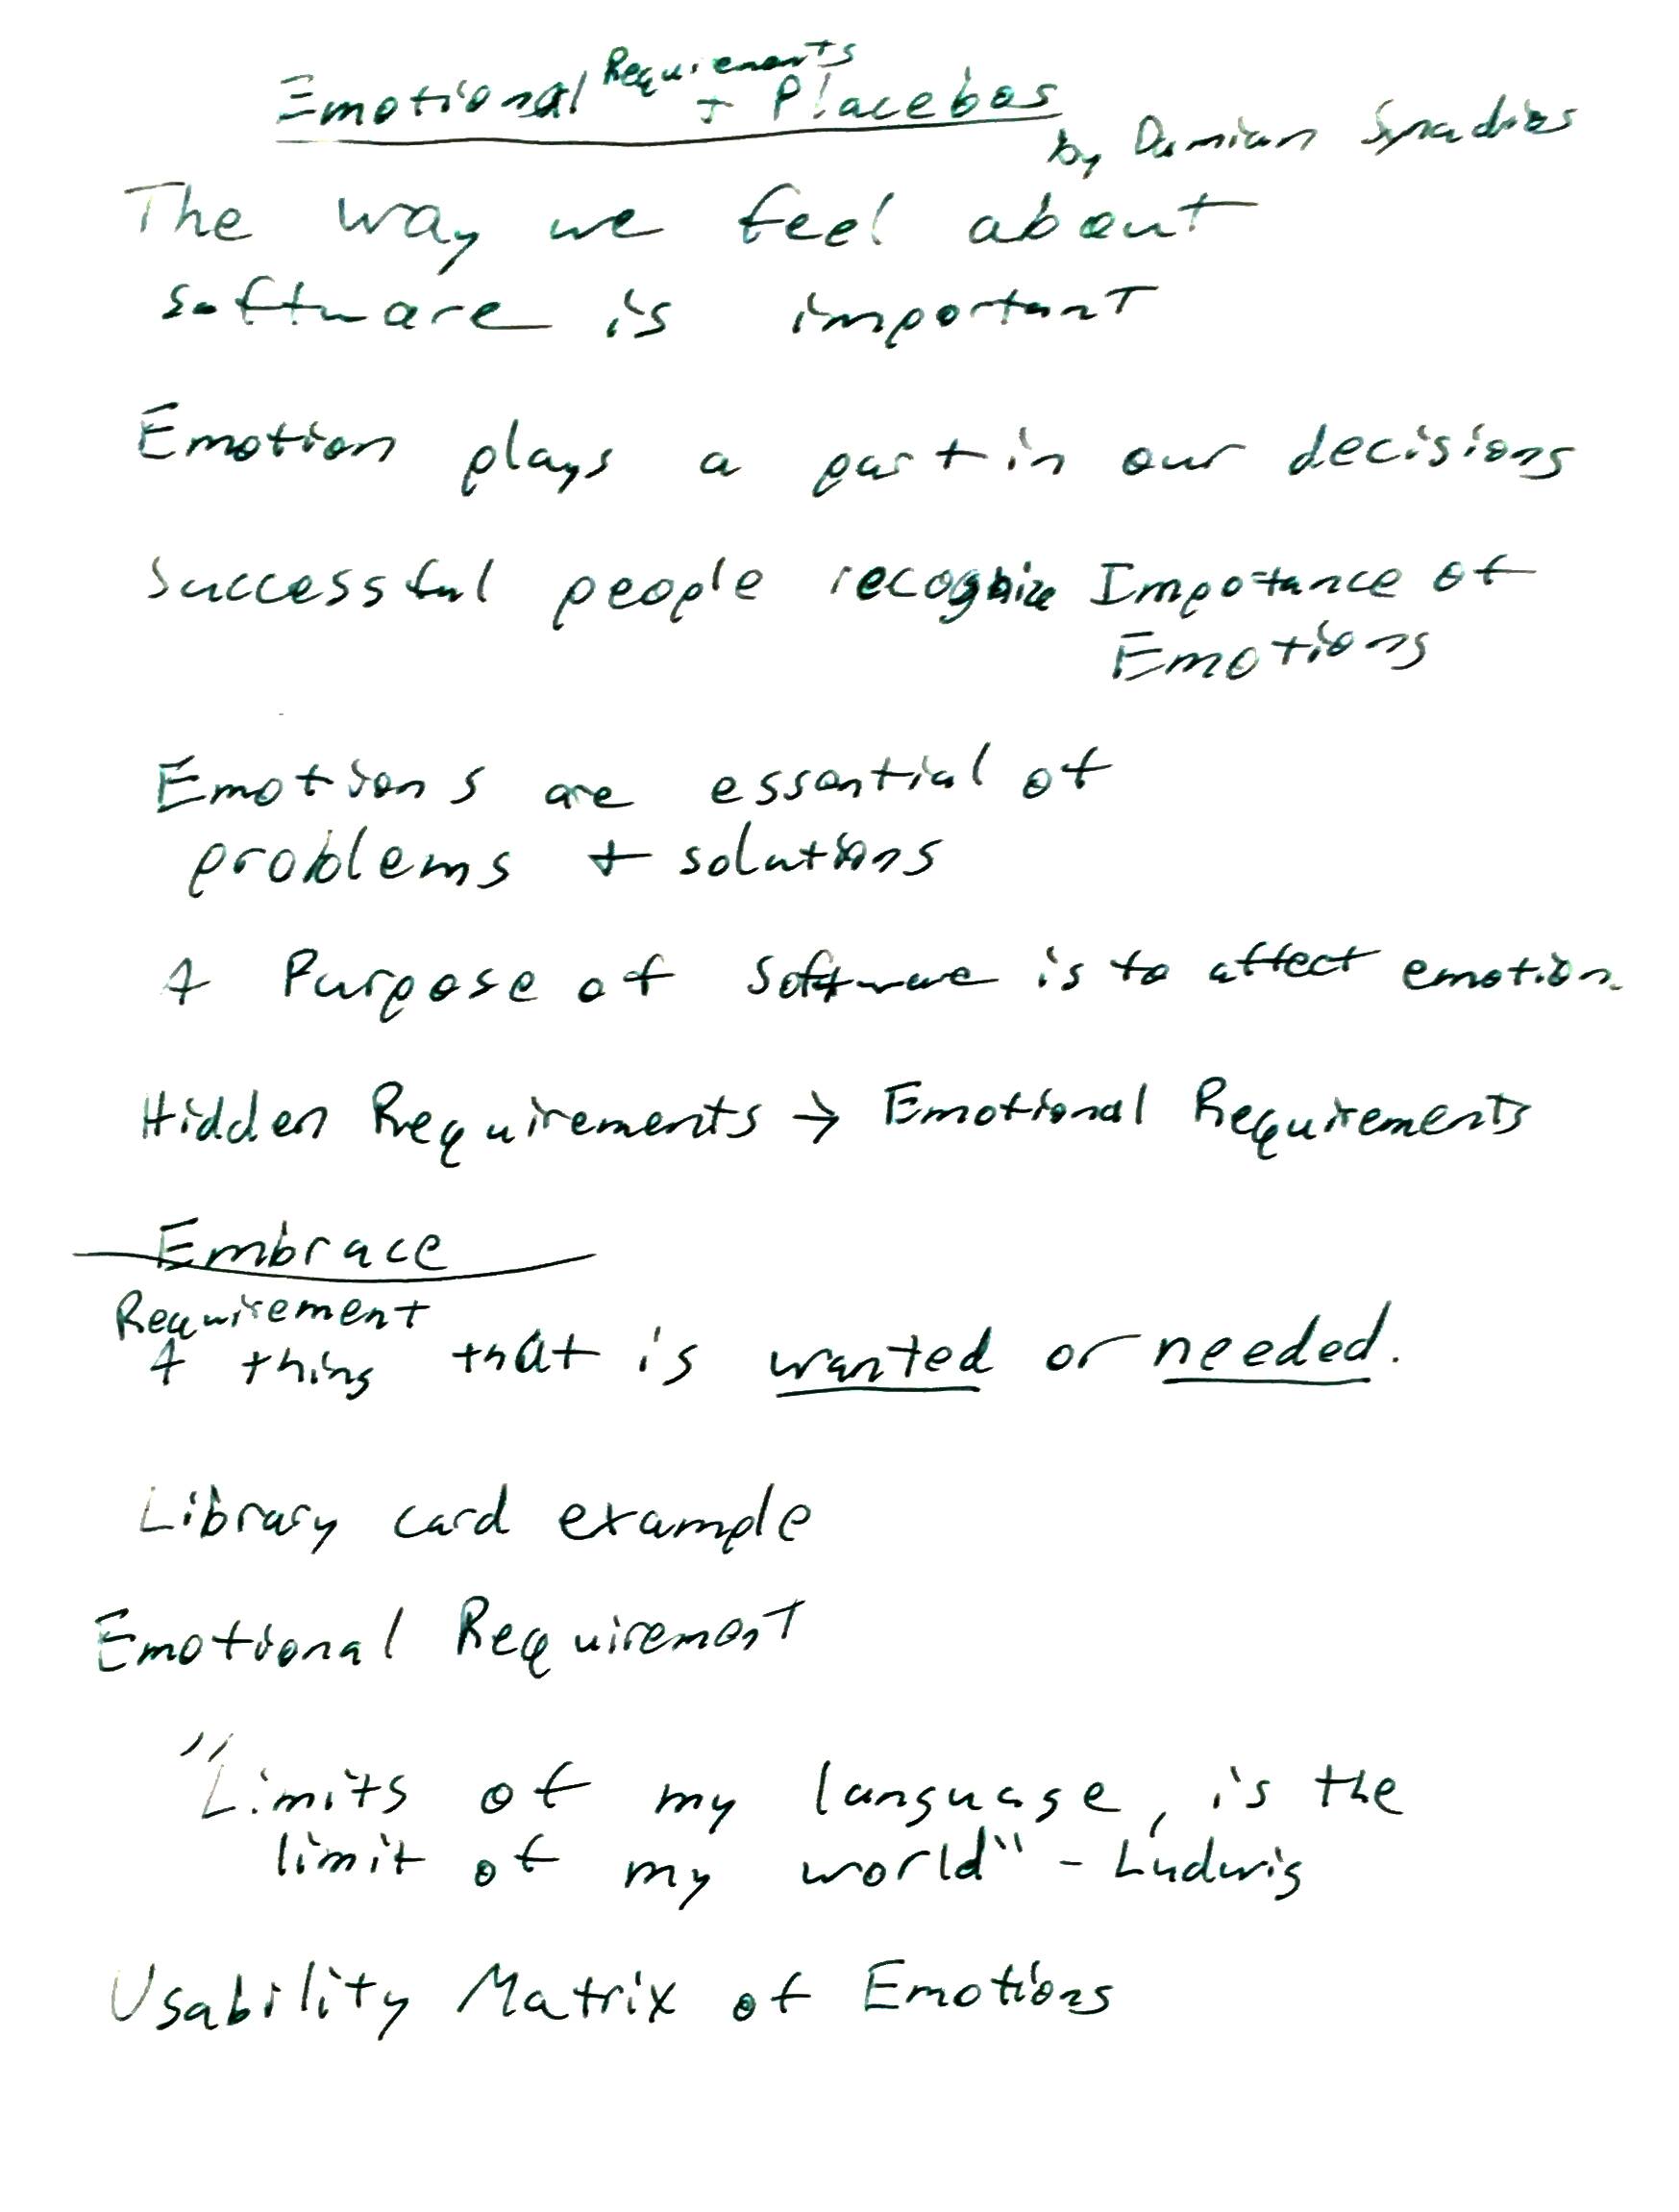 Emotional Requirements + Placebos
by Damian Synadinos
The way we feel about
software is important
Emotion plays a part in our decisions
Successful people recognize Impotance of
Emotions
Emotions are essential of
problems + solutions
A Purpose of Software is to affect emotion.
Hidden Requirements → Emotional Requirements
Embrace
Requirement
A thing that is wanted or needed.
Library card example
Emotional Requirement
"Limits of my language, is the
limit of my world" - Ludwig
Usability Matrix of Emotions